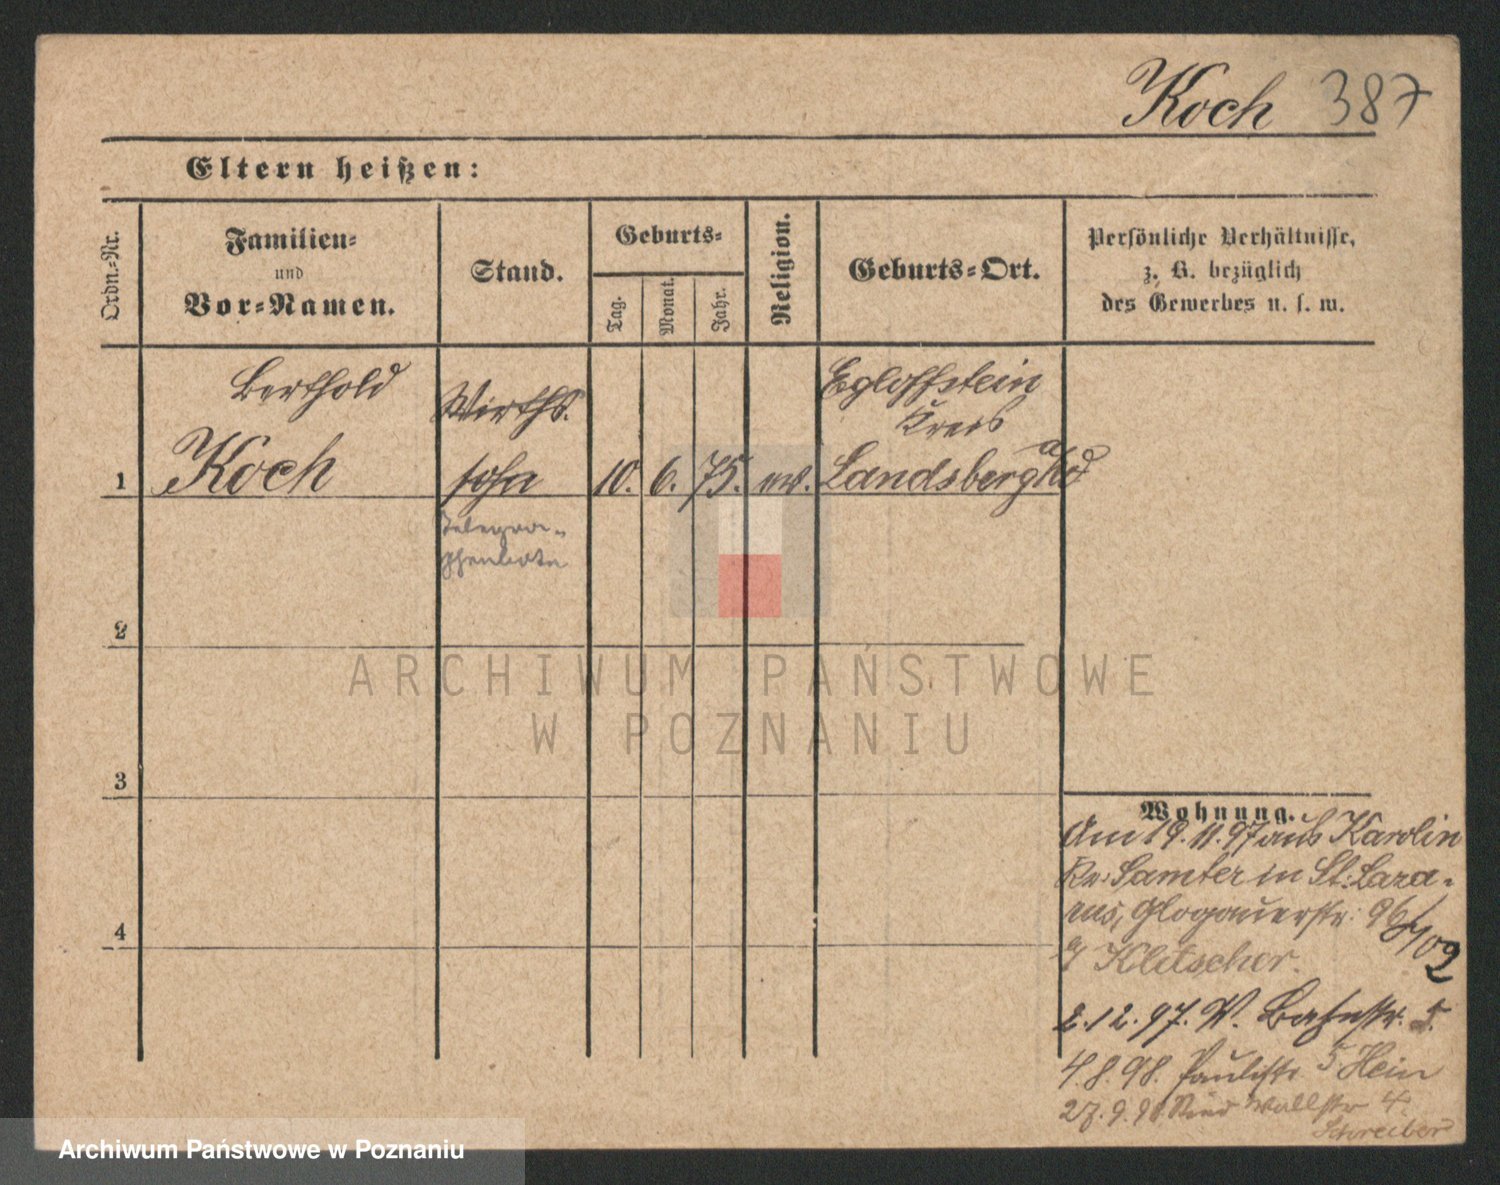 Koch 387
Eltern heißen:
Ordn.-Nr.
Familien-
und
Vor-Namen.
Stand.
Geburts-
Tag.
Monat.
Jahr.
Religion.
Geburts-Ort.
Persönliche Verhältnisse,
z. B. bezüglich
des Gewerbes u. s. w.
Berthold
Koch
Wirths.
sohn
Telegra-
phenbote
1
10. 6. 75. ev.
Egloffstein
Kreis
Landsberg a/W
2
3
4
Wohnung.
Am 19.11.97 aus Karolin
Kr. Samter in St. Laza-
rus, Glogauerstr. 96
b/ Klitscher.
2.12.97. W. Bahnstr. 5.
4.8.98. Paulistr 5 Hein
27.9.98. Wallstr 4.
Schreiber
ARCHIWUM PAŃSTWOWE
W POZNANIU
Archiwum Państwowe w Poznaniu